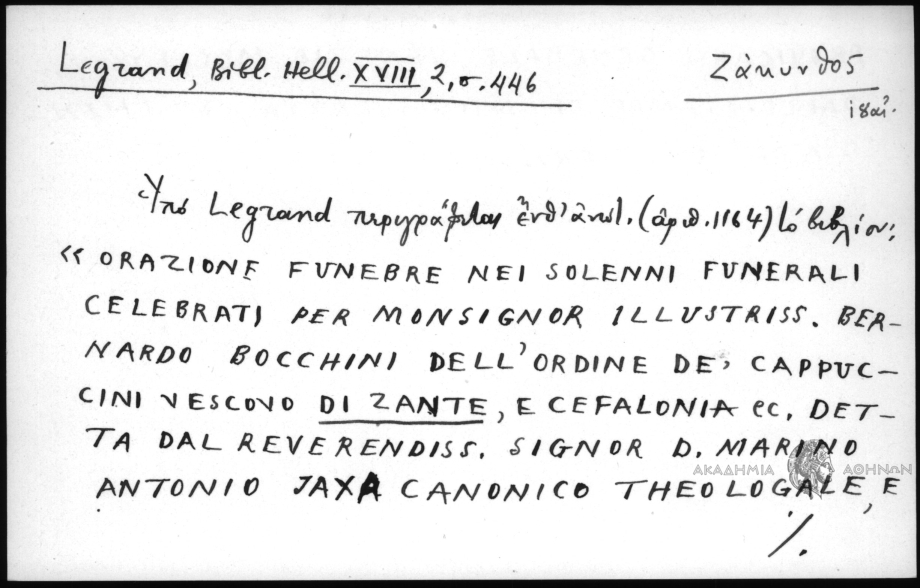 Legrand, Bibl. Hell. XVIII, 2, σ. 446
Ζάκυνθος
ιδαί.
Ὑπὸ Legrand περιγράφεται ἔνθ' ἀνωτ. (ἀριθ. 1164) τὸ βιβλίον:
« ORAZIONE FUNEBRE NEI SOLENNI FUNERALI
CELEBRATI PER MONSIGNOR ILLUSTRISS. BER-
NARDO BOCCHINI DELL'ORDINE DE' CAPPUC-
CINI VESCOVO DI ZANTE, E CEFALONIA ec. DET-
TA DAL REVERENDISS. SIGNOR D. MARINO
ΑΚΑΔΗΜΙΑ ΑΘΗΝΩΝ
ANTONIO JAXA CANONICO THEOLOGALE, E
./.